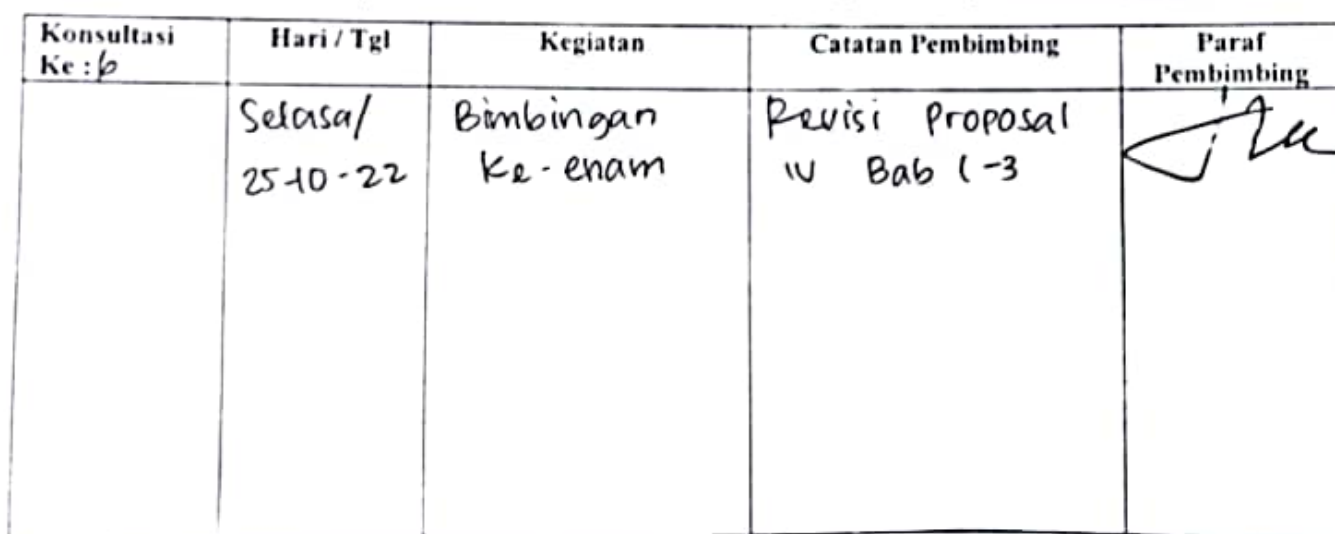 Konsultasi Ke : 6
Hari / Tgl
Kegiatan
Catatan Pembimbing
Paraf Pembimbing
Selasa/
25-10-22
Bimbingan
Ke-enam
Revisi Proposal
IV Bab 1-3